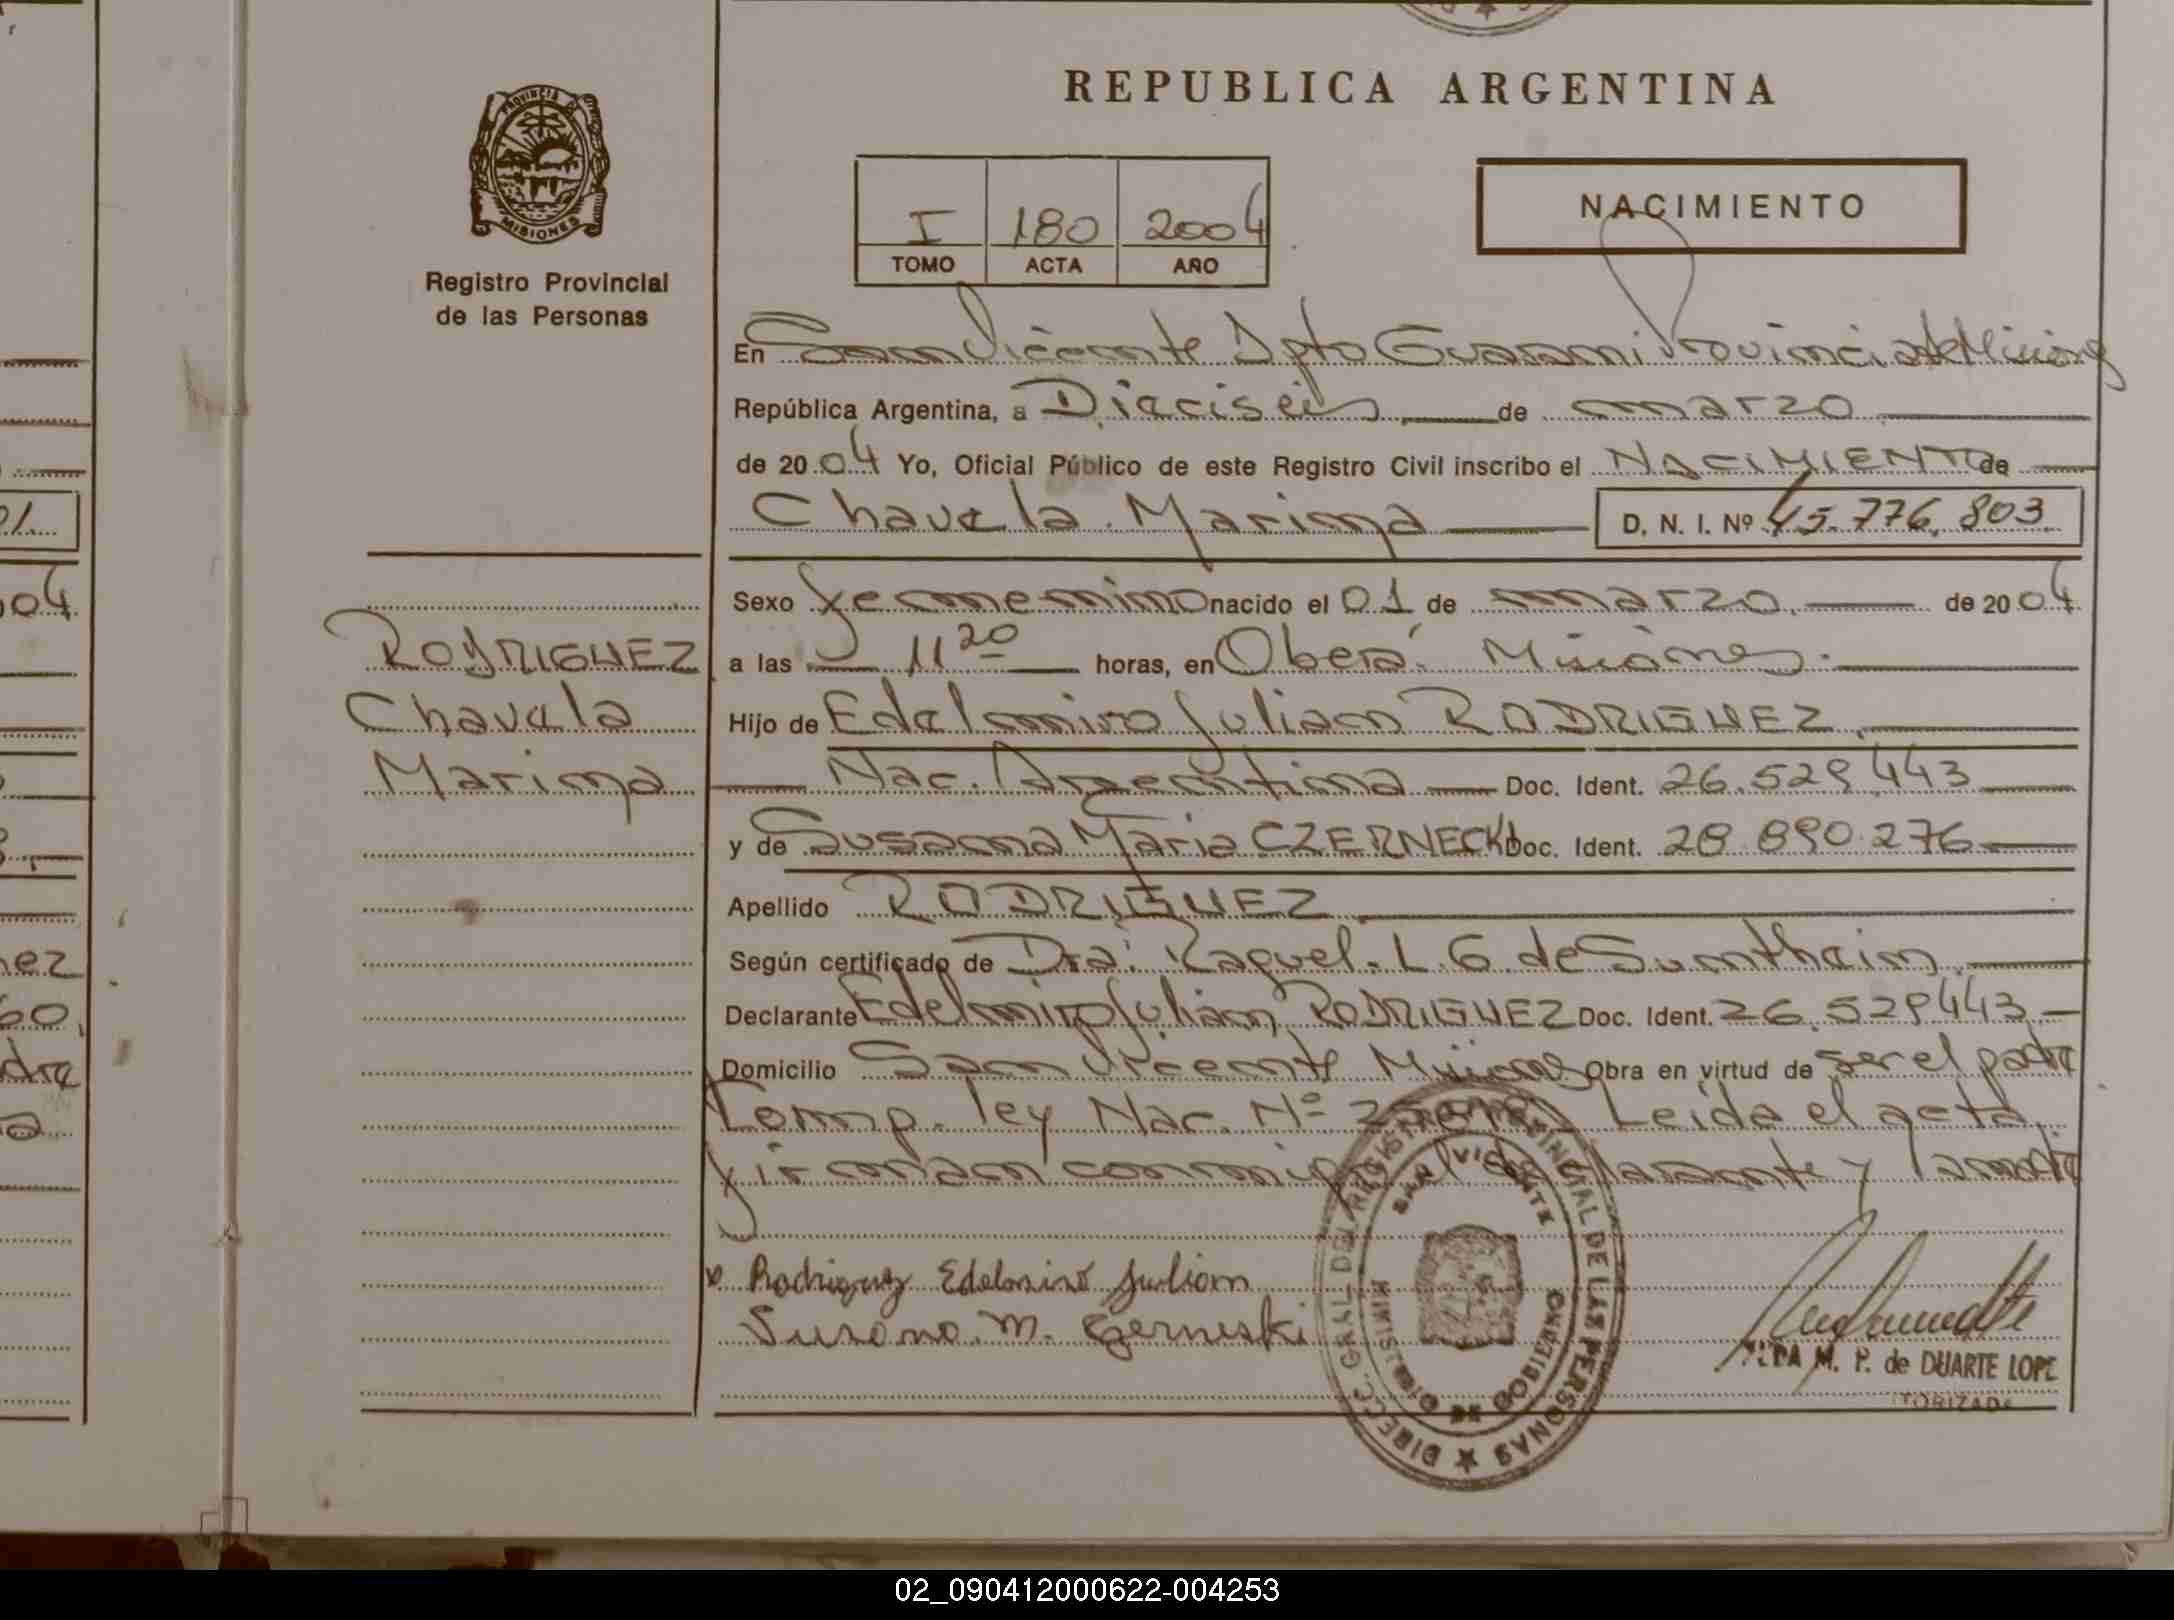 REPUBLICA ARGENTINA
PROVINCIA DE
MISIONES
Registro Provincial
de las Personas
I 180 2004
TOMO ACTA AÑO
NACIMIENTO
En San Vicente Dpto Guarani Provincia de Misiones
República Argentina, a Dieciseis de marzo
de 2004 Yo, Oficial Público de este Registro Civil inscribo el NACIMIENTO de
Chavela Marina D. N. I. Nº 45.776.803
Sexo femenino nacido el 01 de marzo de 2004
a las 11 20 horas, en Oberá Misiones.
Hijo de Edelmiro Julian RODRIGUEZ
Nac. Argentina Doc. Ident. 26.529.443
y de Susana Maria CZERNECKI Doc. Ident. 28.890.276
Apellido RODRIGUEZ
Según certificado de Dra. Raquel. L. G. de Sumthaim
Declarante Edelmiro Julian RODRIGUEZ Doc. Ident. 26.529443
Domicilio San Vicente Misiones Obra en virtud de ser el padre
Comp. ley Nac. Nº Leida el acta
firman conmigo el declarante y la madre
RODRIGUEZ
Chavela
Marina
Rodriguez Edelmiro Julian
Susana. M.
DIRECC. GRAL. DEL REGISTRO PROVINCIAL DE LAS PERSONAS
SAN VICENTE
MINISTERIO DE GOBIERNO
M. P. de DUARTE LOPE
04
nez
60
dre
02_090412000622-004253